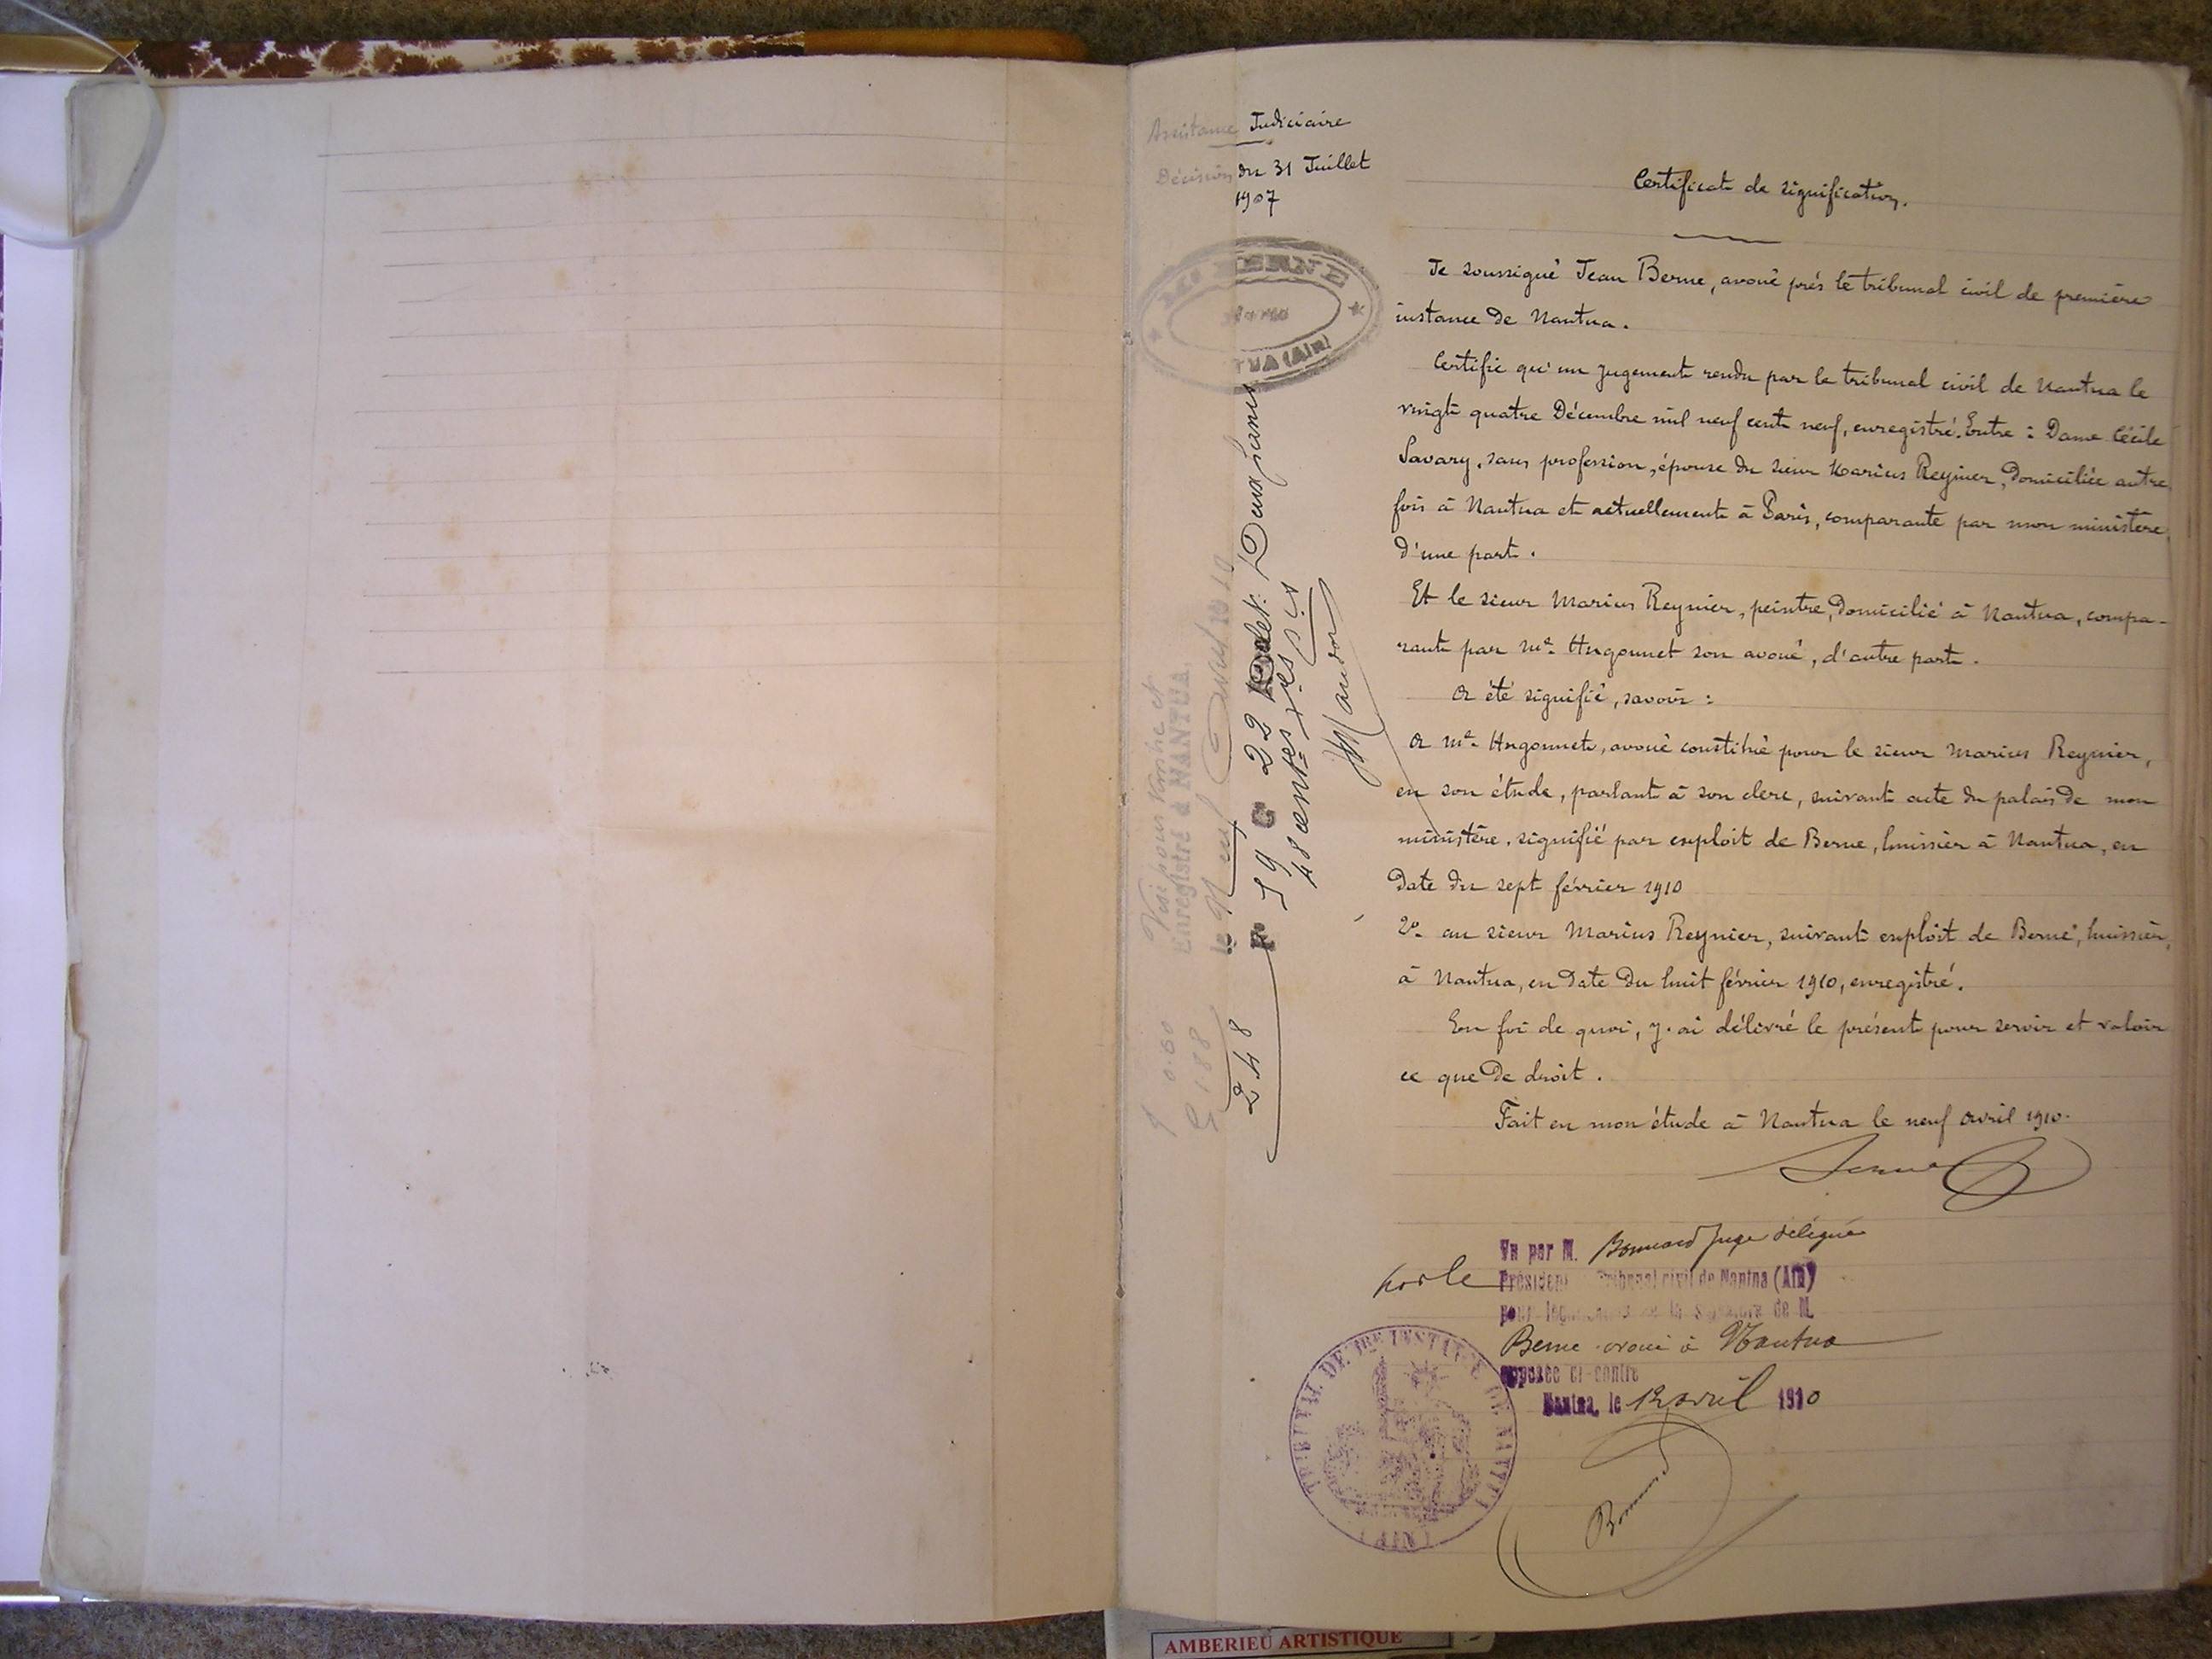 Assistance Judiciaire
Décision du 31 Juillet
1907
Me BERNE
TUA (Ain)
Visé pour timbre et
Enregistré à NANTUA
le Neuf Avril 1910
F° 59 C° 22 Deux francs
48 centmes
0.60
1 88
2 48
Certificat de signification.
Je soussigné Jean Berne, avoué près le tribunal civil de première
instance de Nantua.
Certifie qu'un jugement rendu par le tribunal civil de Nantua le
vingt quatre Décembre mil neuf cent neuf, enregistré. Entre : Dame Cécile
Savary, sans profession, épouse du sieur Marius Reynier, domiciliée autre
fois à Nantua et actuellement à Paris, comparante par mon ministère,
d'une part.
Et le sieur Marius Reynier, peintre, domicilié à Nantua, compa-
rant par Me Hugonnet son avoué, d'autre part.
A été signifié, savoir :
A Me Hugonnet, avoué constitué pour le sieur Marius Reynier,
en son étude, parlant à son clerc, suivant acte du palais de mon
ministère, signifié par exploit de Berne, huissier à Nantua, en
Date du sept février 1910
2° au sieur Marius Reynier, suivant exploit de Berne, huissier,
à Nantua, en date du huit février 1910, enregistré.
En foi de quoi, j'ai délivré le présent pour servir et valoir
ce que de droit.
Fait en mon étude à Nantua le neuf avril 1910.
Berne
Vu par M. Bonnard Juge délégué
par le Président Tribunal civil de Nantua (Ain)
pour la signature de M.
Berne avoué à Nantua
apposée ci-contre
Nantua, le 12 avril 1910
TRIBUNAL DE 1RE INSTANCE DE NANTUA (AIN)
Bonnard
AMBERIEU ARTISTIQUE